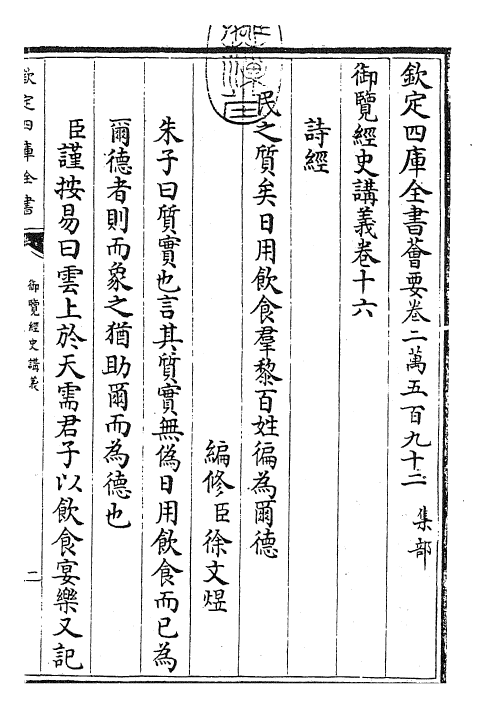 欽定四庫全書薈要卷二萬五百九十二 集部
御覽經史講義卷十六
詩經
民之質矣日用飲食羣黎百姓徧為爾德
編修臣徐文煜
朱子曰質實也言其質實無偽日用飲食而已為
爾德者則而象之猶助爾而為德也
臣謹按易曰雲上於天需君子以飲食宴樂又記
欽定四庫全書
御覽經史講義